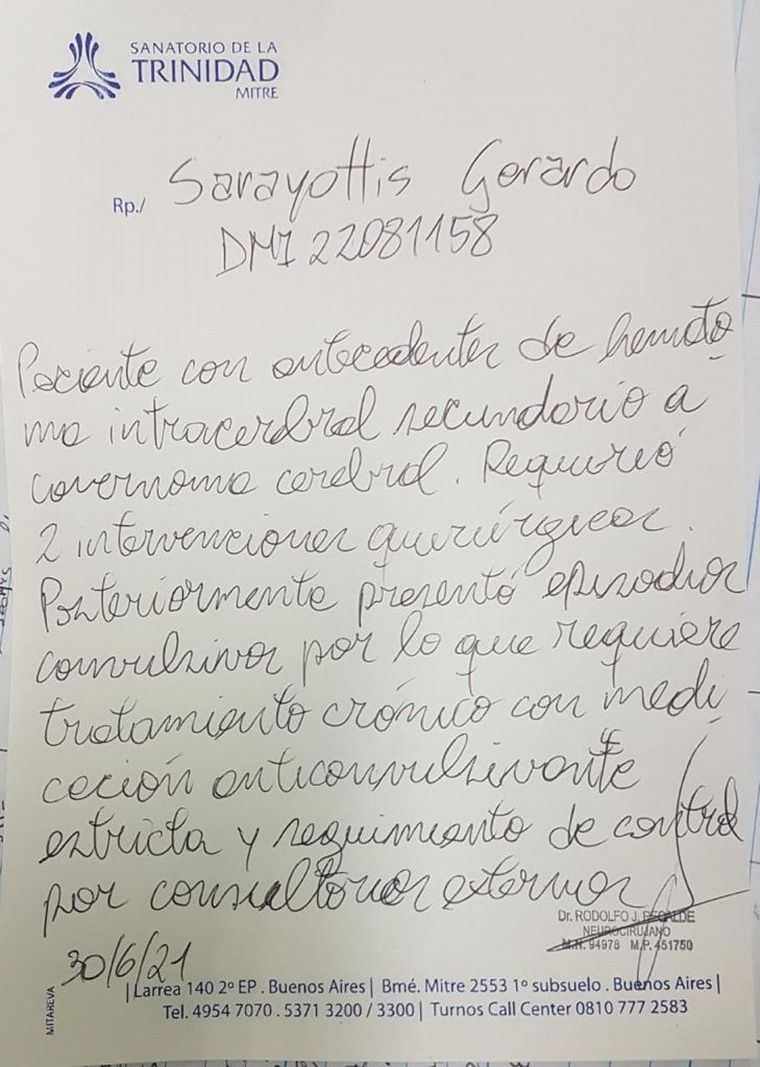 SANATORIO DE LA
TRINIDAD
MITRE
Rp./ Sarayottis Gerardo
DNI 22081158
Paciente con antecedentes de hemato
ma intracerebral secundario a
cavernoma cerebral. Requirió
2 intervenciones quirúrgicas.
Posteriormente presentó episodios
convulsivos por lo que requiere
tratamiento crónico con medi
cación anticonvulsivante
estricta y seguimiento de control
por consultorios externos
Dr. RODOLFO J.
NEUROCIRUJANO
M.N. 94978 M.P. 451750
30/6/21
| Larrea 140 2º EP . Buenos Aires | Bmé. Mitre 2553 1º subsuelo . Buenos Aires |
Tel. 4954 7070 . 5371 3200 / 3300 | Turnos Call Center 0810 777 2583
MITAREVA